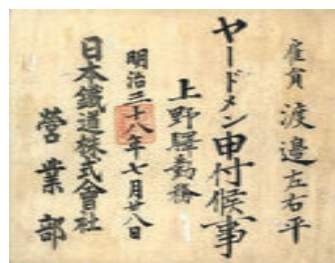 雇員 渡邊左右平
ヤードメン申付候事
上野驛勤務
明治三十八年七月廿八日
日本鐵道株式會社
營業部